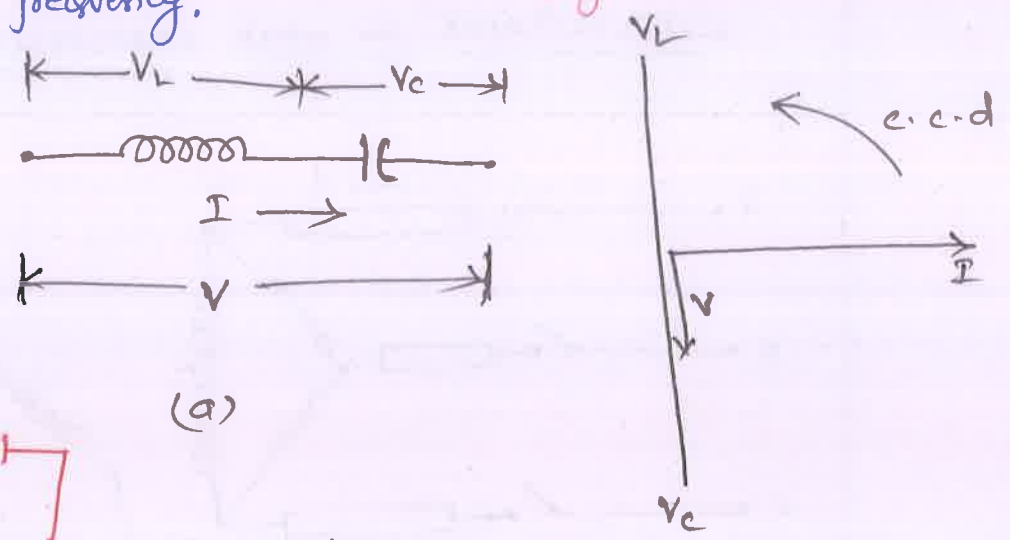 frequency.
V_L V_C
I
V
(a)
V_L
c.c.d
I
V
V_C